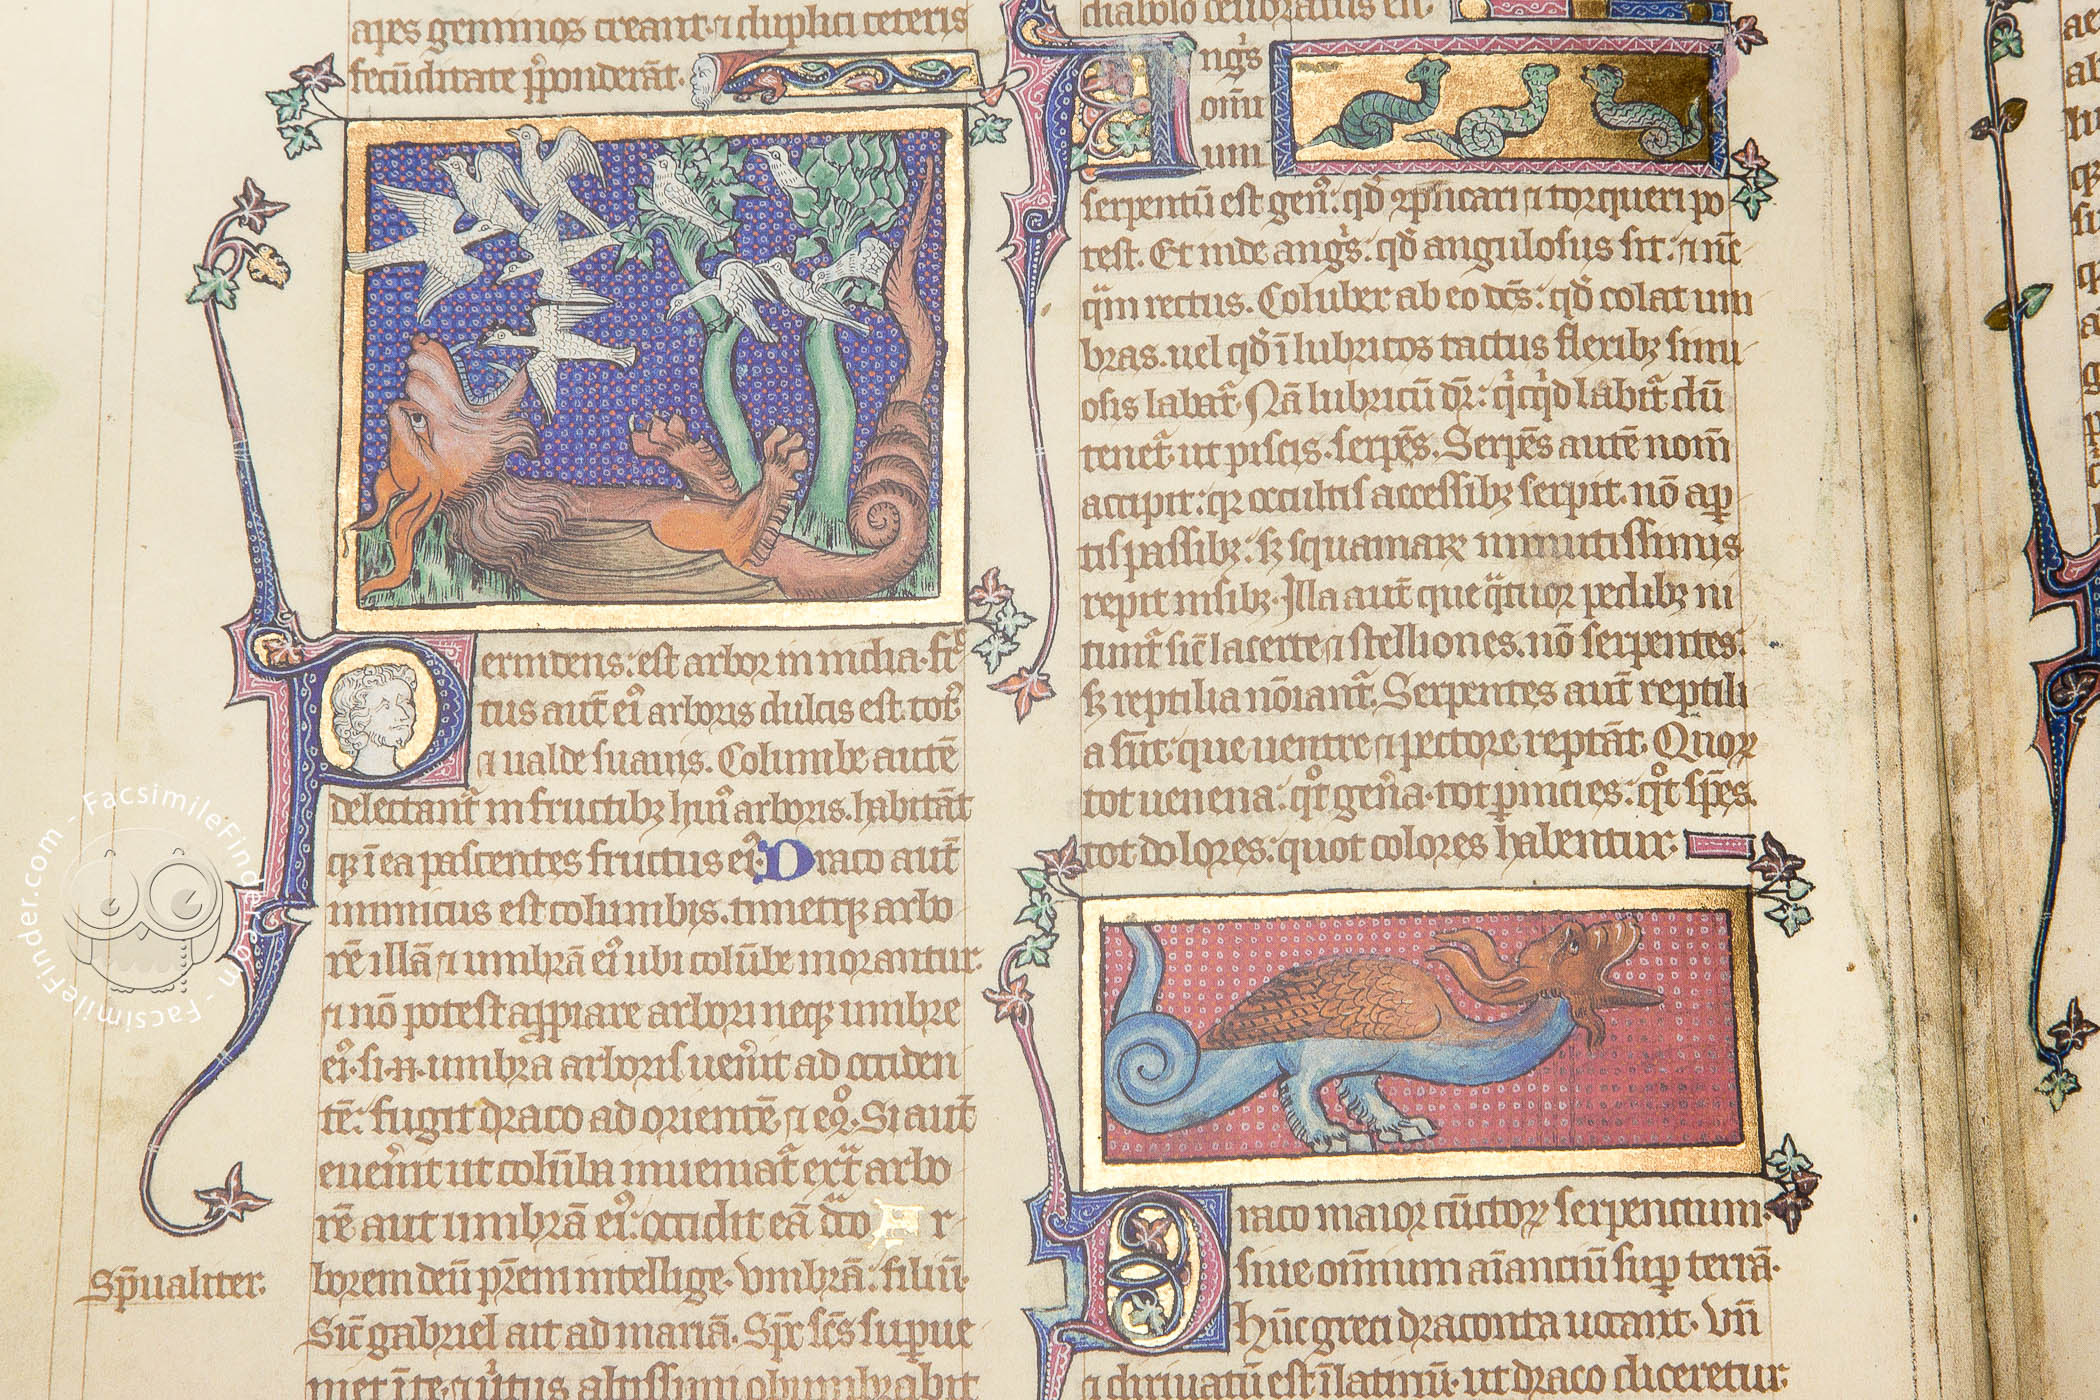 apes geminos creant ⁊ duplici ceteris
fecūditate p̄ponderāt.
Permdens: est arbor in india. fru͛c
tus aut̄ eiꝰ arboris dulcis est totꝰ
⁊ ualde suauis. Columbe autē
delectant᷑ in fructibꝫ huiꝰ arboris. habitāt
qꝫ ī ea pascentes fructus eiꝰ. Draco aut̄
inimicus est columbis. timetqꝫ arbo
rē illā ⁊ umbrā eiꝰ ubi colūbe morantur.
⁊ nō potest app̱piare arbori neqꝫ umbre
eiꝰ. si .n. umbra arboris uen͛it ad occiden
tē: fugit draco ad orientē ⁊ eꝯ. Si aut̄
euen͛it ut colūba inueniat᷑ ext͛a arbo
rē aut umbrā eiꝰ: occidit eā dͣco Ar
borem deū pr̄em intellige. Vmbrā: filiū.
Sic̄ gabriel ait ad mariā. Spc̄ sc̄s sup̱ue
niet ī te ⁊ uirtus altissimi obumbrabit
Sp̄ualiter.
diabolo celibratus est.
Angͥs
oīu
um
serpentū est genꝰ: qd̄ ꝯplicari ⁊ torqueri po
test. Et inde angͥs: qd̄ angulosus sit: ⁊ nū
qͣm rectus. Coluber ab eo dc̄s: qd̄ colat um
bras. uel qd̄ ī lubricos tactus flexibꝫ sinu
osis labat᷑. Nā lubricū dr̄: qͥcqͥd labit᷑ dū
tenet᷑ ut piscis. serpēs. Serpēs autē nom̄
accipit: qꝛ occultis accessibꝫ serpit. nō ap̱
tis passibꝫ: sꝫ squamaꝝ minutissimis
repit nisibꝫ. Illa aut̄ que qͣtuor pedibꝫ ni
tunt᷑ sic̄ lacerte ⁊ stelliones. nō serpentes:
sꝫ reptilia nōiant᷑. Serpentes aut̄ reptili
a sūt: que uentre ⁊ pectore reptāt. Quoꝝ
tot uenena: qͦt gen͛a. tot p̱nicies: qͦt sp̄es.
tot dolores: quot colores habentur.
Draco maior cūctoꝝ serpentium.
siue omnium aīanciū sup̱ terrā.
Hūc greci draconta uocant. Vn̄
⁊ diriuatū est ī latinū. ut draco diceretur
FacsimileFinder.com - FacsimileFinder.com - FacsimileFinder.com